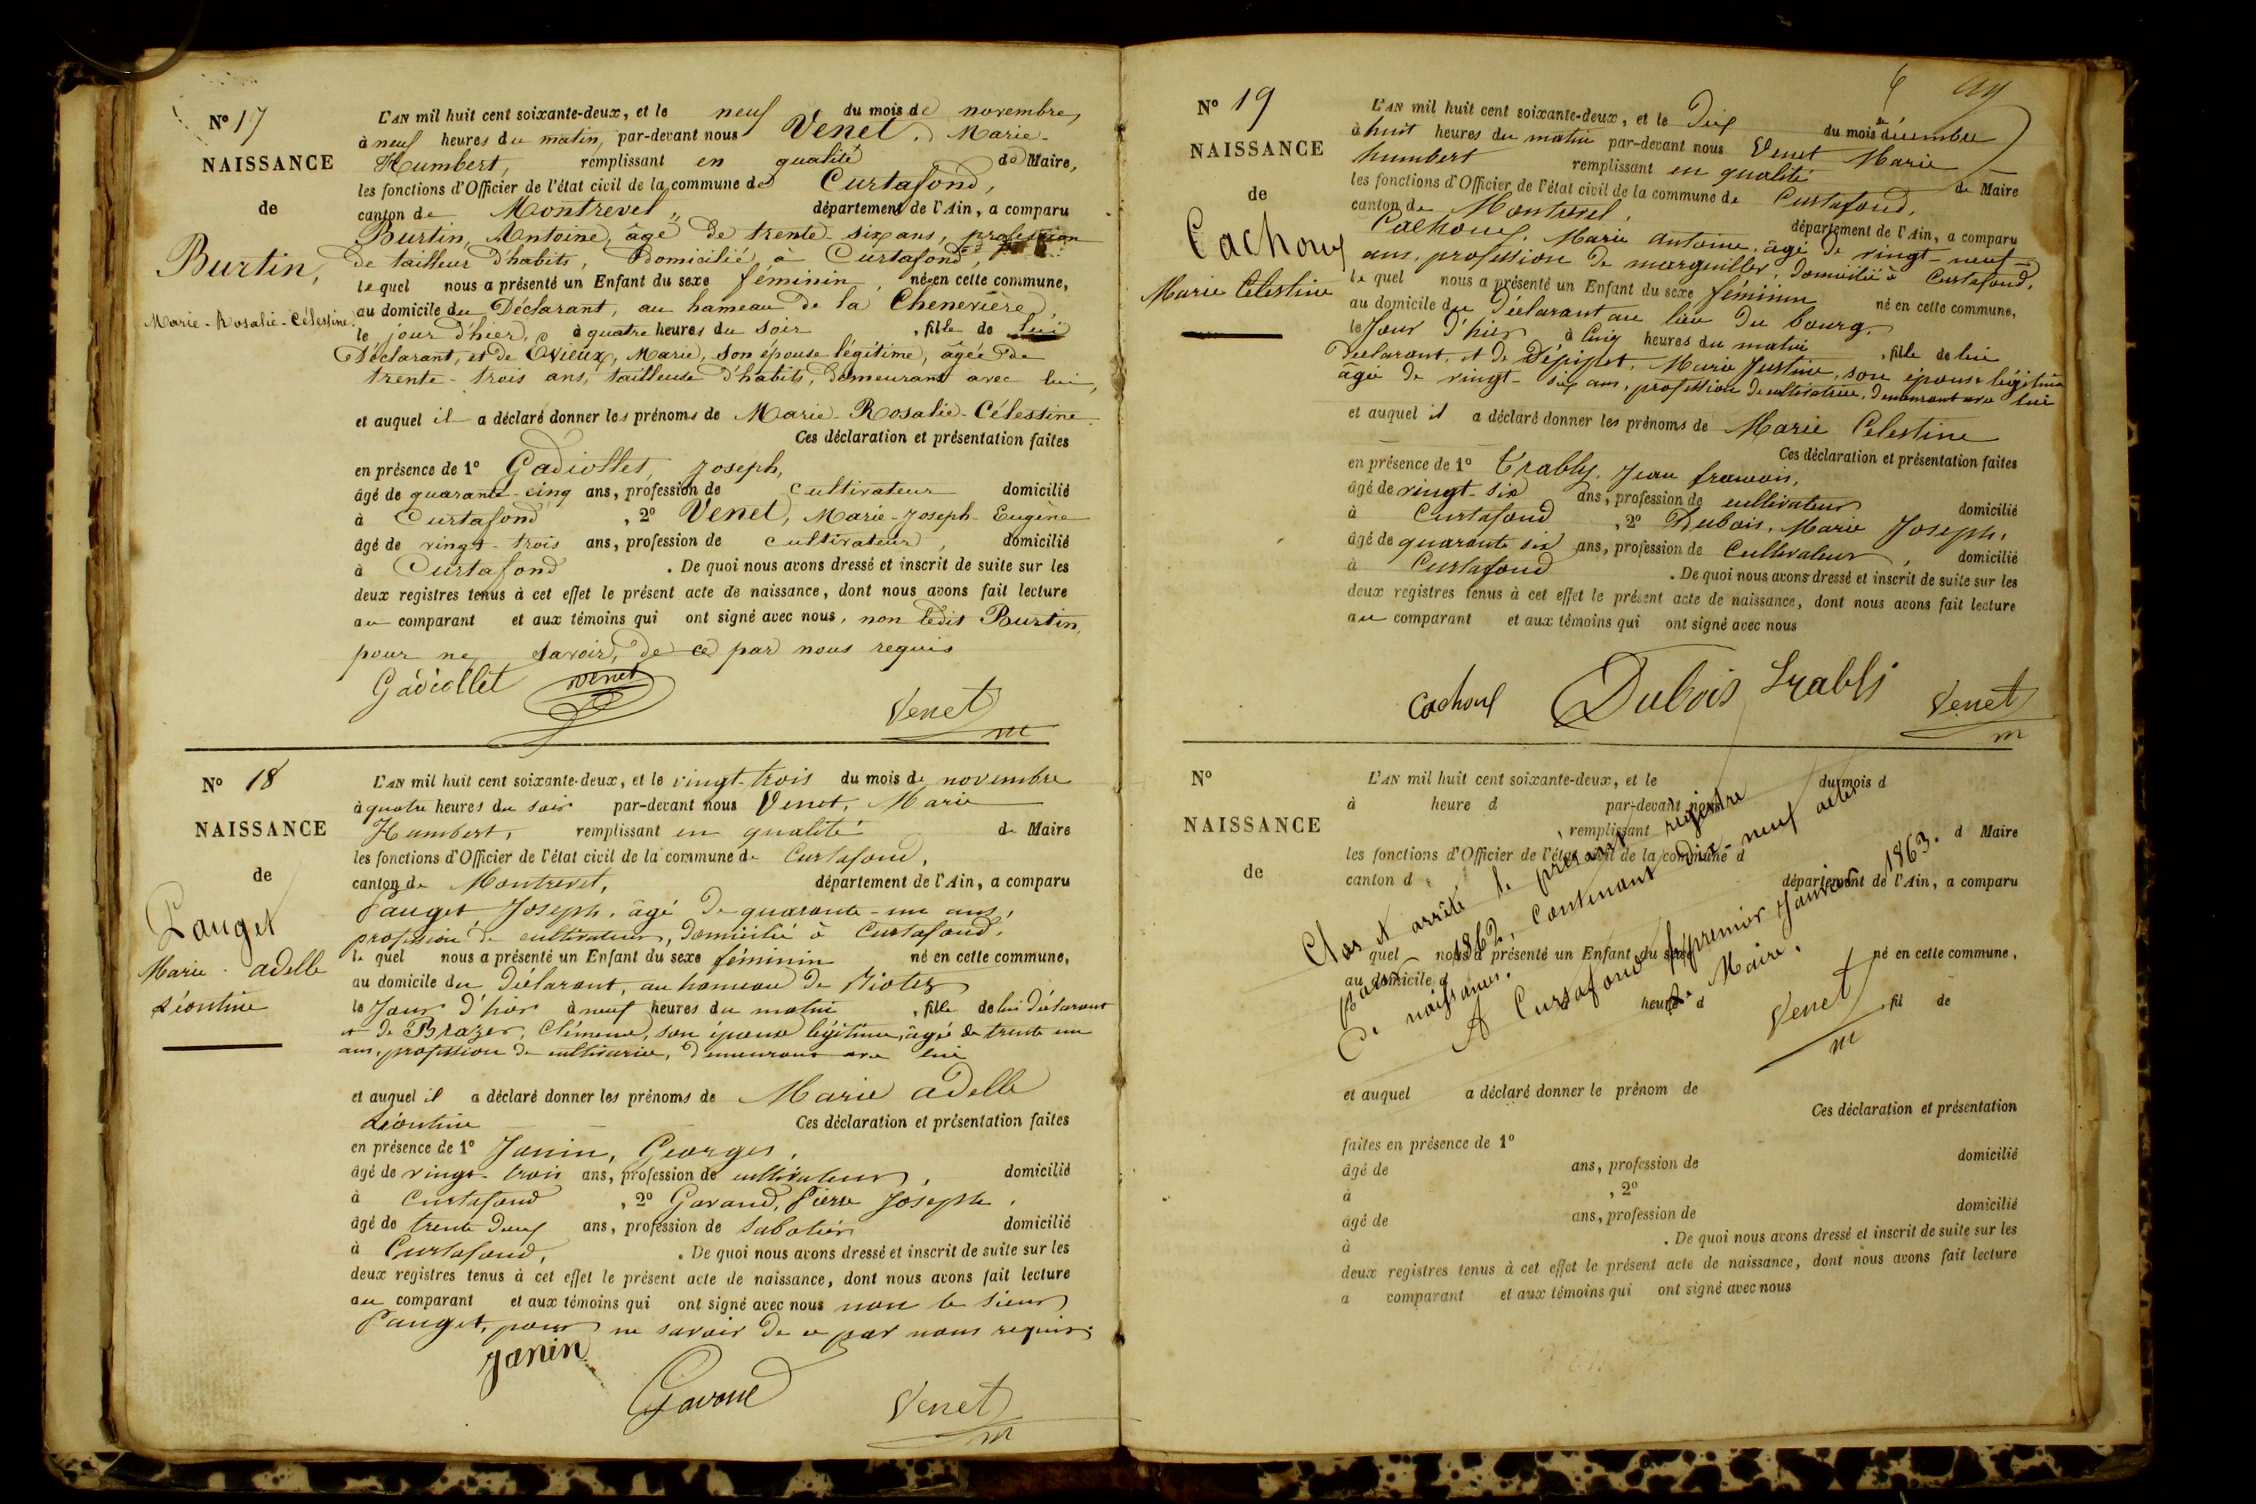 No 17
NAISSANCE
de
Burtin,
Marie-Rosalie-Célestine.
L'AN mil huit cent soixante-deux, et le neuf du mois de novembre,
à neuf heures du matin, par-devant nous Venet, Marie-
Humbert, remplissant en qualité de Maire,
les fonctions d'Officier de l'état civil de la commune de Curtafond,
canton de Montrevel, département de l'Ain, a comparu
Burtin, Antoine, âgé de trente-six ans, profession
de tailleur d'habits, domicilié à Curtafond,
lequel nous a présenté un Enfant du sexe féminin, né en cette commune,
au domicile du Déclarant, au hameau de la Chenevière,
le jour d'hier, à quatre heures du soir, fille de lui
Déclarant, et de Ovieux, Marie, son épouse légitime, âgée de
trente-trois ans, tailleuse d'habits, demeurant avec lui,
et auquel il a déclaré donner les prénoms de Marie-Rosalie-Célestine
Ces déclaration et présentation faites
en présence de 1º Gadiollet, Joseph,
âgé de quarante-cinq ans, profession de cultivateur domicilié
à Curtafond, 2º Venet, Marie-Joseph-Eugène
âgé de vingt-trois ans, profession de cultivateur, domicilié
à Curtafond. De quoi nous avons dressé et inscrit de suite sur les
deux registres tenus à cet effet le présent acte de naissance, dont nous avons fait lecture
au comparant et aux témoins qui ont signé avec nous, non ledit Burtin,
pour ne savoir, de ce par nous requis
Gadiollet Venet
Venet
m
No 18
NAISSANCE
de
Pauget
Marie adelle
Léontine
L'AN mil huit cent soixante-deux, et le vingt-trois du mois de novembre
à quatre heures du soir par-devant nous Venet, Marie
Humbert, remplissant en qualité de Maire
les fonctions d'Officier de l'état civil de la commune de Curtafond,
canton de Montrevel, département de l'Ain, a comparu
Pauget Joseph, âgé de quarante-un ans,
profession de cultivateur, domicilié à Curtafond,
le quel nous a présenté un Enfant du sexe féminin né en cette commune,
au domicile du Déclarant, au hameau de
le Jour d'hier à neuf heures du matin, fille de lui Déclarant
et de Brazer, Clémence, son épouse légitime, âgée de trente un
ans, profession de cultivatrice, demeurant avec lui
et auquel il a déclaré donner les prénoms de Marie adelle
Léontine Ces déclaration et présentation faites
en présence de 1º Janin, Georges,
âgé de vingt-trois ans, profession de cultivateur, domicilié
à Curtafond, 2º Gavand, Pierre Joseph,
âgé de trente deux ans, profession de sabotier domicilié
à Curtafond, . De quoi nous avons dressé et inscrit de suite sur les
deux registres tenus à cet effet le présent acte de naissance, dont nous avons fait lecture
au comparant et aux témoins qui ont signé avec nous non le sieur
Pauget, pour ne savoir de ce par nous requis.
Janin
Gavand
Venet
m
6
No 19
NAISSANCE
de
Cachoux
Marie Celestine
L'AN mil huit cent soixante-deux, et le Dix du mois de décembre
à huit heures du matin par-devant nous Venet Marie
humbert remplissant en qualité de Maire
les fonctions d'Officier de l'état civil de la commune de Curtafond,
canton de Montrevel, département de l'Ain, a comparu
Cachoux, Marie antoine, âgé de vingt-neuf
ans, profession de marguiller, domicilié à Curtafond,
le quel nous a présenté un Enfant du sexe féminin né en cette commune,
au domicile du Déclarant au lieu du bourg.
le Jour d'hier à cinq heures du matin, fille de lui
Déclarant, et de Marie Justine, son épouse légitime
âgée de vingt-six ans, profession de cultivatrice, demeurant avec lui
et auquel il a déclaré donner les prénoms de Marie Celestine
Ces déclaration et présentation faites
en présence de 1º Trably, Jean francois,
âgé de vingt-six ans, profession de cultivateur domicilié
à Curtafond, 2º Dubois, Marie Joseph,
âgé de quarante six ans, profession de Cultivateur, domicilié
à Curtafond. De quoi nous avons dressé et inscrit de suite sur les
deux registres tenus à cet effet le présent acte de naissance, dont nous avons fait lecture
au comparant et aux témoins qui ont signé avec nous
Cachoux Dubois Trably Venet
m
No
NAISSANCE
de
L'AN mil huit cent soixante-deux, et le du mois d
à heure d par-devant nous
remplissant d Maire
les fonctions d'Officier de l'état civil de la commune d
canton d département de l'Ain, a comparu
quel nous a présenté un Enfant du sexe né en cette commune,
au domicile d
le heure d , fil de
Clos et arrêté le présent registre
pour 1862, contenant dix-neuf actes
De naissances.
A Curtafond le premier Janvier 1863.
Le Maire.
Venet
m
et auquel a déclaré donner le prénom de
Ces déclaration et présentation
faites en présence de 1º
âgé de ans, profession de domicilié
à , 2º
âgé de ans, profession de domicilié
à . De quoi nous avons dressé et inscrit de suite sur les
deux registres tenus à cet effet le présent acte de naissance, dont nous avons fait lecture
a comparant et aux témoins qui ont signé avec nous